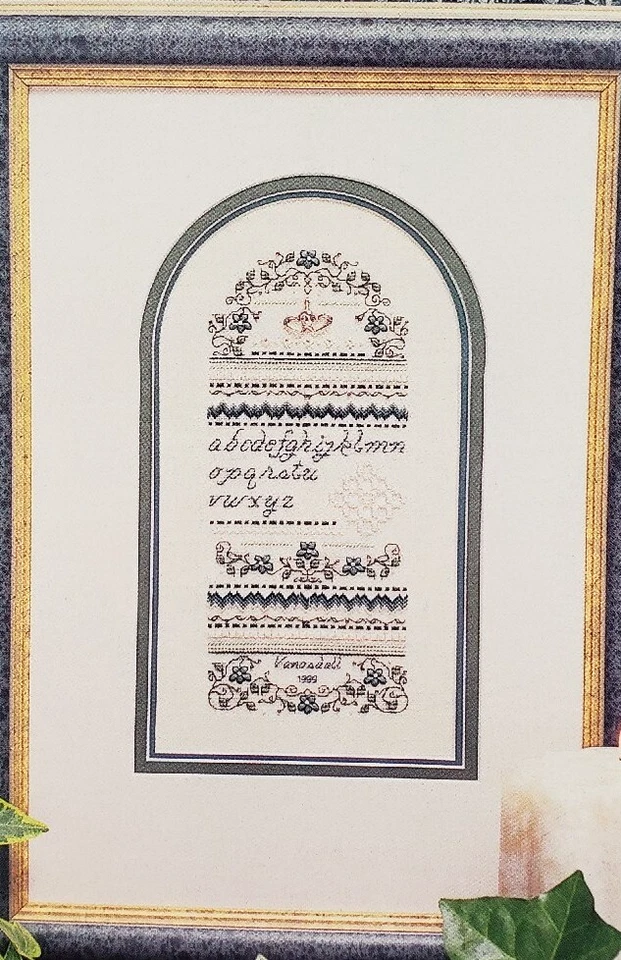 abcdefghijklmn
opqrstu
vwxyz
Vanosdall
1999